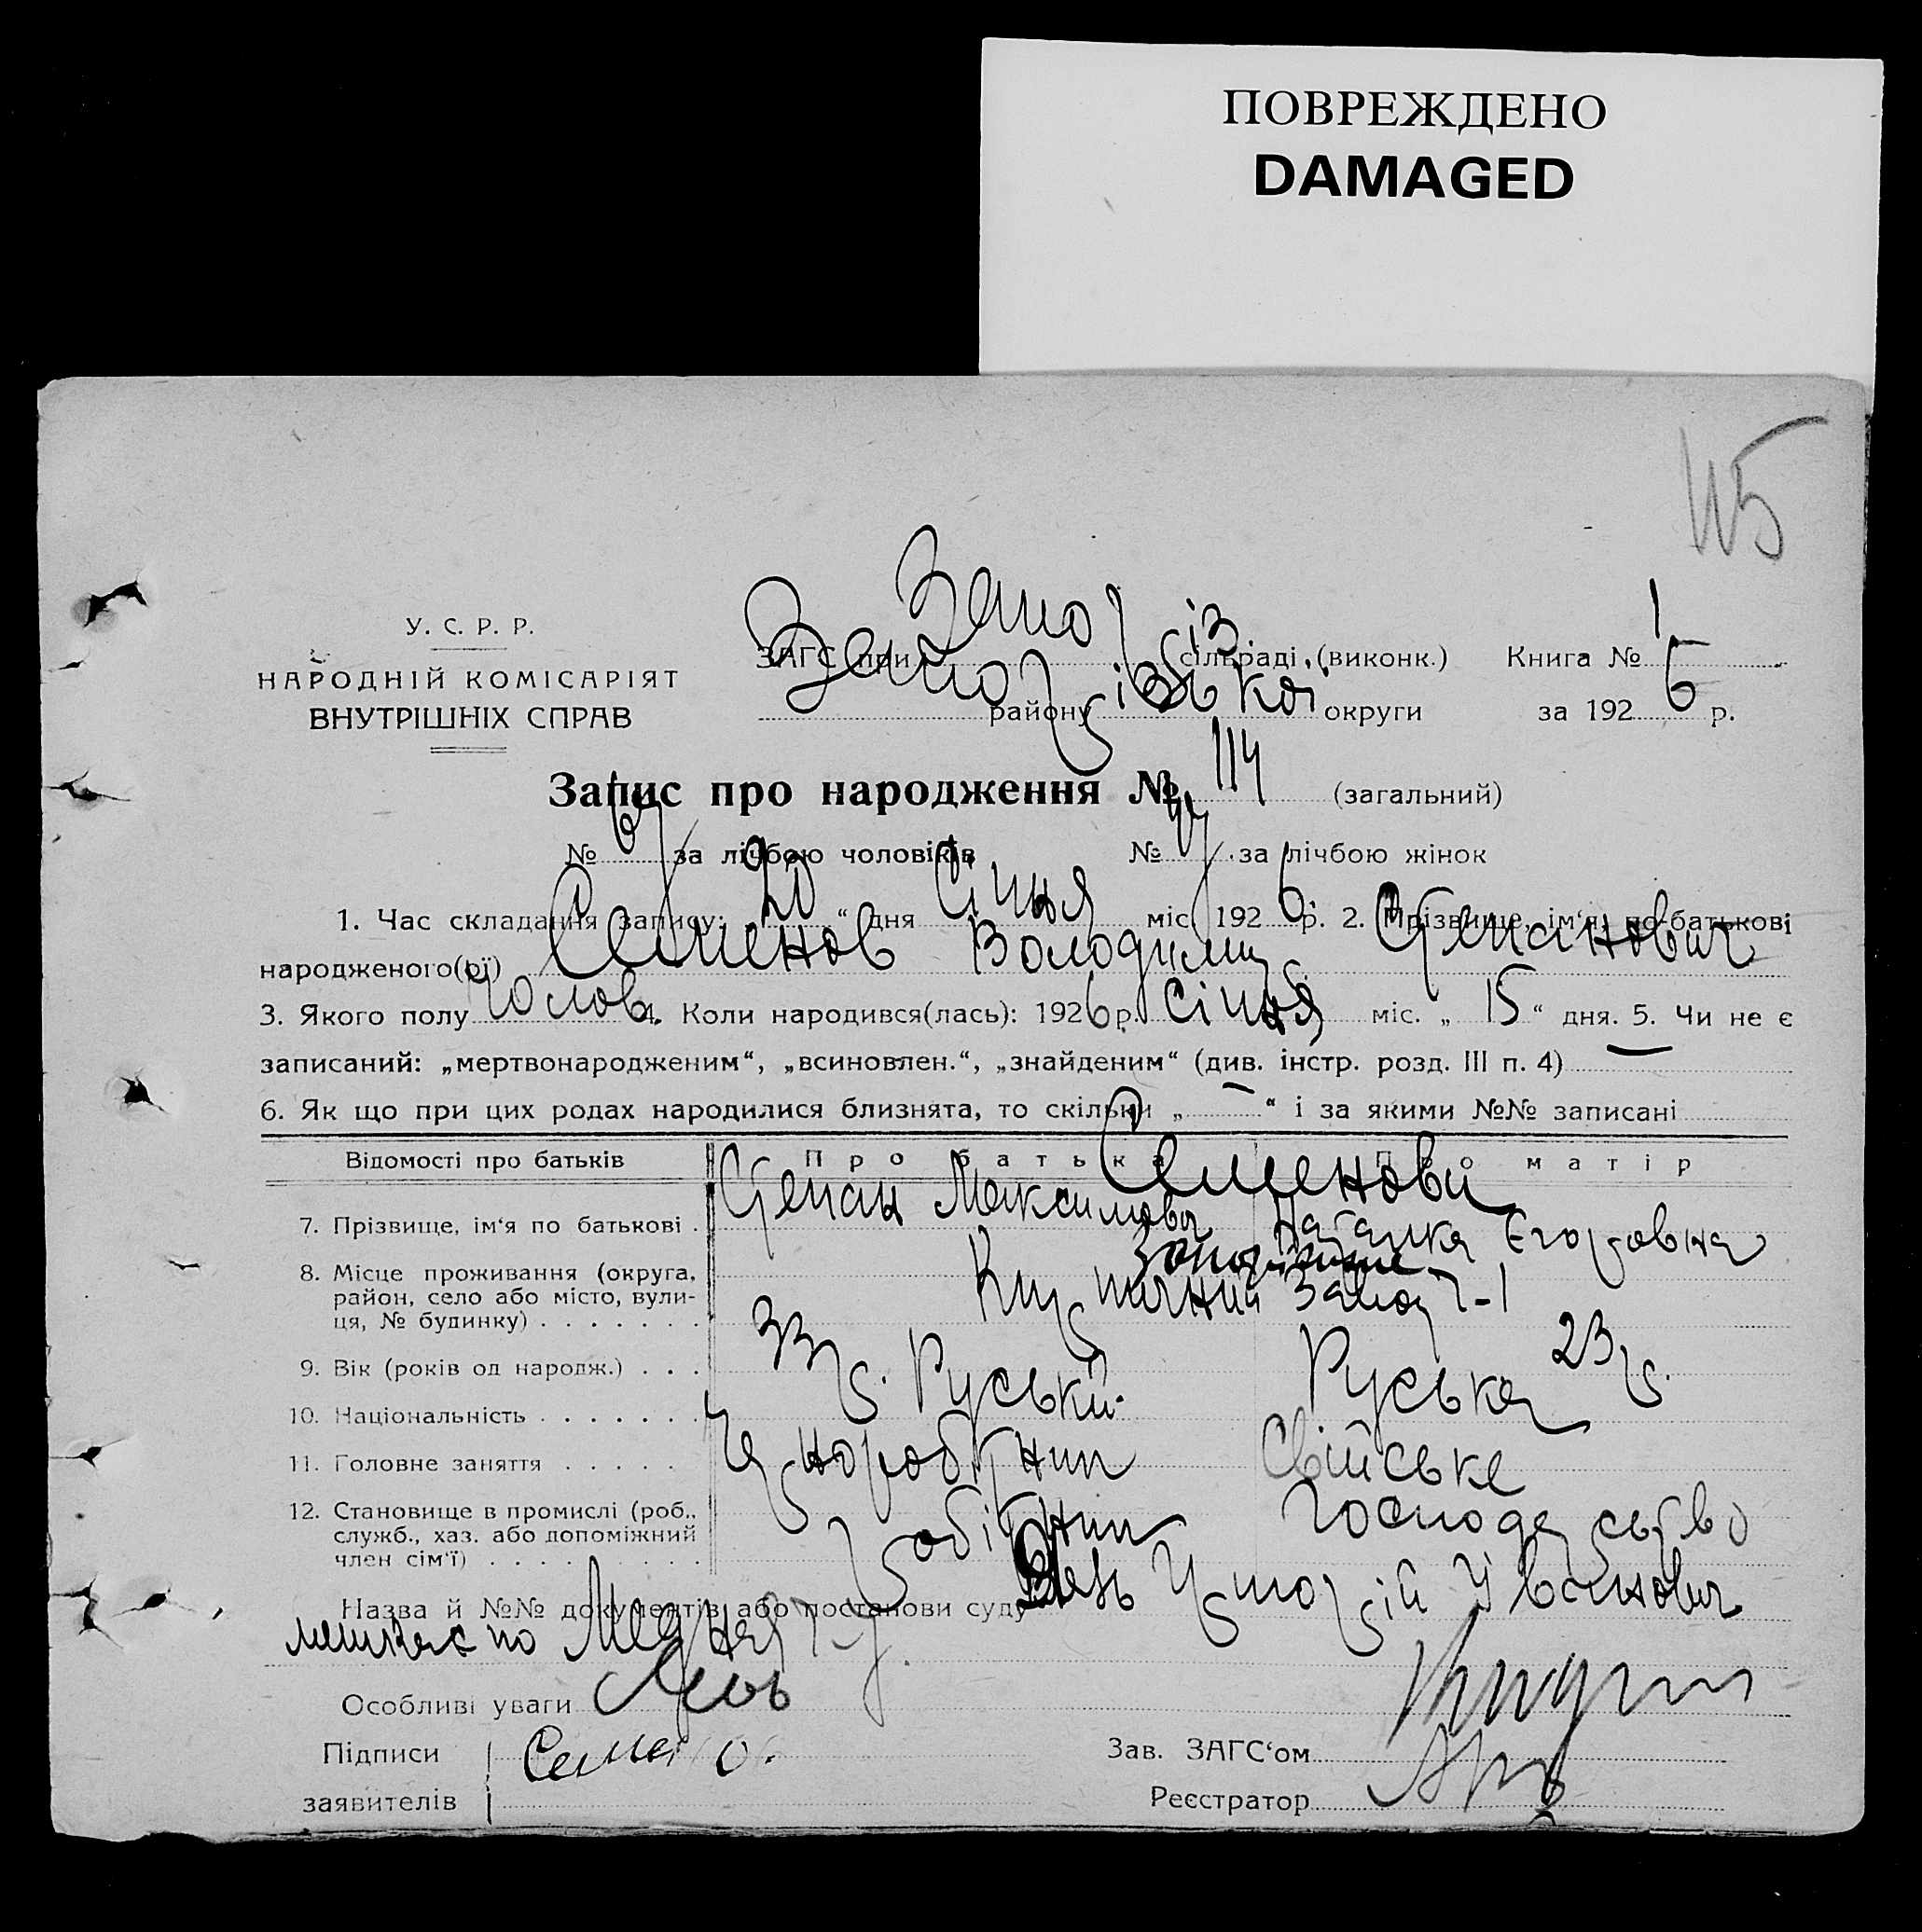 ПОВРЕЖДЕНО
DAMAGED
115
У. С. Р. Р.
НАРОДНІЙ КОМІСАРІЯТ
ВНУТРІШНІХ СПРАВ
ЗАГС при Запоріз. сільраді, (виконк.) Книга № 1
району Запорізької округи за 1926 р.
Запис про народження № 114 (загальний)
№ 67 за лічбою чоловіків № 47 за лічбою жінок
1. Час складання запису: 20 “ дня Січня міс. 1926 р. 2. Прізвище, ім‘я, по-батькові
народженого(ої) Семенов Володимир Степанович
3. Якого полу Чолов. 4. Коли народився(лась): 1926 р. Січня міс. „ 15 “ дня. 5. Чи не є
записаний: „мертвонародженим“, „всиновлен.“, „знайденим“ (див. інстр. розд. III п. 4) —
6. Як що при цих родах народилися близнята, то скільки „ — “ і за якими №№ записані
Відомості про батьків Про батька Про матір
Семенови
7. Прізвище, ім‘я по батькові . Степан Максимович Наталка Єгоровна
8. Місце проживання (округа, район, село або місто, вулиця, № будинку) . . . . . . . Запоріжжє
Кирпичний Завод 7-1
9. Вік (років од народж.) . . . 33 р. 23 р.
10. Національність . . . . . . . Руський Руська
11. Головне заняття . . . . . Чорноробітник Свійське
12. Становище в промислі (роб., служб., хаз. або допоміжний член сім‘ї) . . . . . . . . . Робітник господарство
Назва й №№ документів або постанови суду Григорій Іванович
мешкає по
Особливі уваги
Підписи Семено.
заявителів
Зав. ЗАГС‘ом
Реєстратор